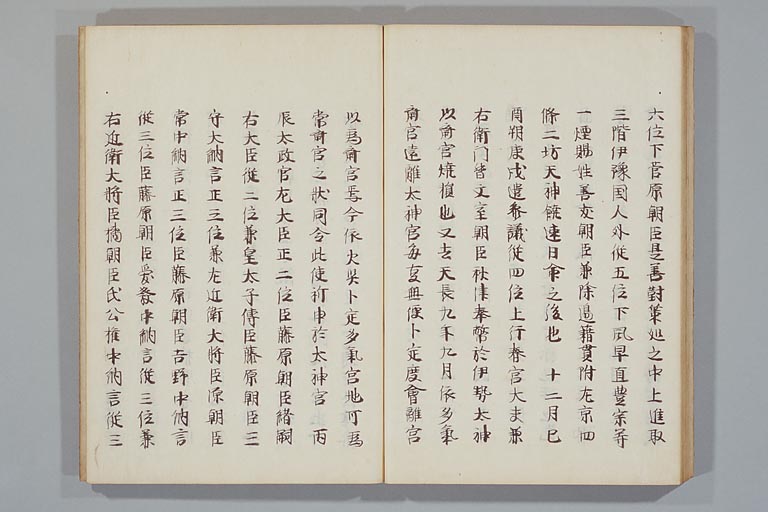 六位下菅原朝臣是善對策処之中上進取
三階伊豫國人外従五位下風早直豊宗等
一煙賜姓善友朝臣兼除邊籍貫附左京四
條二坊天神饒速日命之後也　十二月己
酉朔庚戌遣参議従四位上行春宮大夫兼
右衛門督文室朝臣秋津奉幣於伊勢太神
以斎宮焼損也又去天長九年九月依多氣
斎宮遠離太神宮毎事無便卜定度會離宮
以為斎宮焉今依火災卜定多氣宮地可為
常斎宮之状同令此使祈申於太神宮　丙
辰太政官左大臣正二位臣藤原朝臣緒嗣
右大臣従二位兼皇太子傅臣藤原朝臣三
守大納言正三位兼左近衛大将臣源朝臣
常中納言正三位臣藤原朝臣吉野中納言
従三位臣藤原朝臣愛發中納言従三位兼
右近衛大将臣橘朝臣氏公権中納言従三